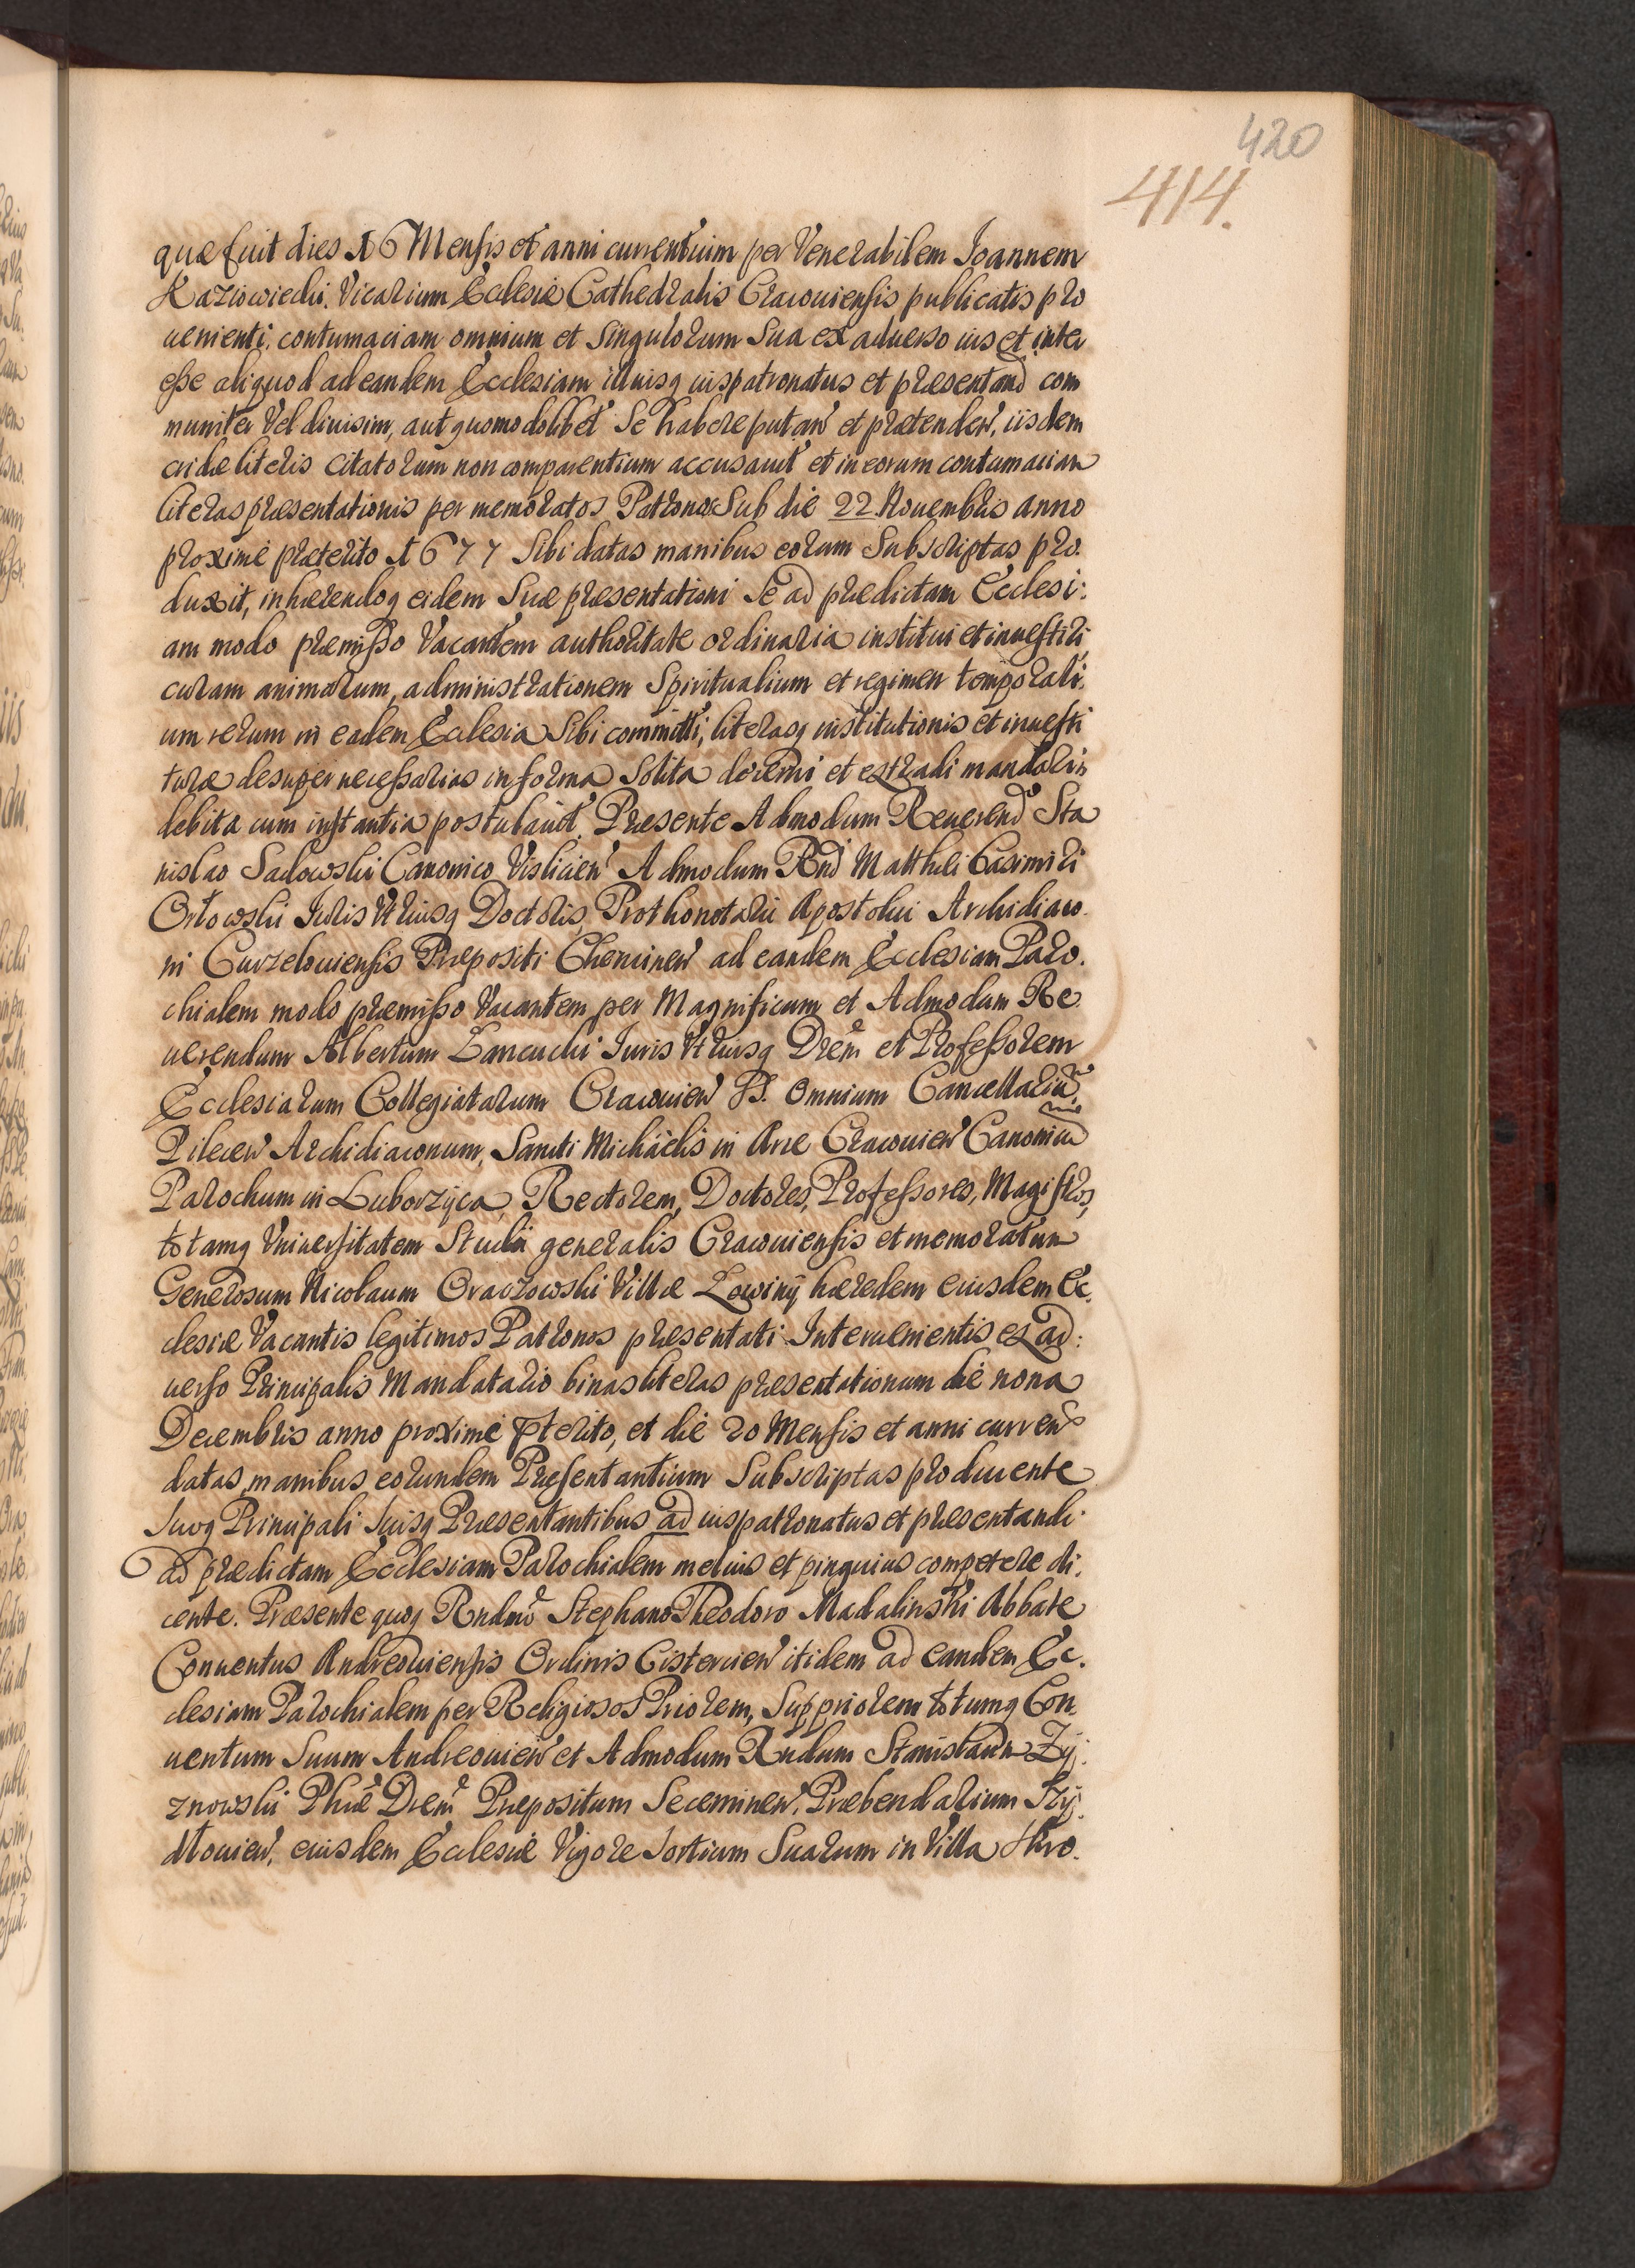 420
414.
quæ fuit dies 16 Mensis et anni currentium per Venerabilem Joannem
Vicarium Ecclesiæ Cathedralis Cracouiensis publicatis pro
uenienti. contumaciam omnium et Singulorum Sua ex aduerso ius et inter
esse aliquod ad eandem Ecclesiam illiusq iuspatronatus et præsentand com
muniter Vel diuisim, aut quomodolibet Se habere putan et prætenden, iisdem
cridæ literis citatorum non comparentium accusauit et in eorum contumaciam
literas præsentationis per memoratos Patronos Sub die 22 Nouembris anno
proxime præterito 1677 Sibi datas manibus eorum Subscriptas pro.
duxit, inhærendoq eidem Suæ præsentationi Se ad prædictam Ecclesi:
am modo præmisso Vacantem authoritate ordinaria institui et inuestiri,
curam animarum, administrationem Spiritualium et regimen temporali:
um rerum in eadem Ecclesia Sibi committi, literasq institutionis et inuesti
turæ desuper necessarias in forma Solita decerni et extradi mandari
debita cum instantia postulauit. Præsente Admodum Reuerend Sta
nislao Sadowski Canonico Vislicien Admodum Rnd Matthæi Casimiri
Orłowski Juris Vtriusq Doctoris, Prothonotarii Apostolici Archidiaco.
ni Curzelouiensis Præpositi Cheminen ad eandem Ecclesiam Paro.
chialem modo præmisso Vacantem per Magnificum et Admodum Re
uerendum Albertum Łancucki Juris Vtriusq Drem et Professorem
Ecclesiarum Collegiatarum Cracouien SS. Omnium Cancellariu,
Pilecen Archidiaconum, Sancti Michaëlis in Arce Cracouien Canonicu
Parochum in Luborzyca, Rectorem, Doctores, Professores, Magistros,
totamq Vniuersitatem Studii generalis Cracouiensis et memoratum
Generosum Nicolaum Oraczowski Villæ Łowinÿ hæredem eiusdem Ec.
clesiæ Vacantis legitimos Patronos præsentati Interuenientis ex ad:
uerso Principalis Mandatario binas literas præsentationum die nona
Decembris anno proxime pterito, et die 20 Mensis et anni curren
datas manibus eorundem Præsentantium Subscriptas producente
Suoq Principali Suisq Præsentantibus ad iuspatronatus et præsentandi
ad prædictam Ecclesiam Parochialem melius et pinguius competere di:
cente. Præsente quoq Rndmo Stephano Theodoro Madalinski Abbate
Conuentus Andreouiensis Ordinis Cistercien itidem ad eandem Ec.
clesiam Parochialem per Religiosos Priorem, Suppriorem totumq Con
uentum Suum Andreouien et Admodum Rndum Stanislaum Zy
znowski Phiæ Drem Præpositum Seceminen, Præbendarium Szy
dłouien, eiusdem Ecclesiæ Vigore Sortium Suarum in Villa Skro.